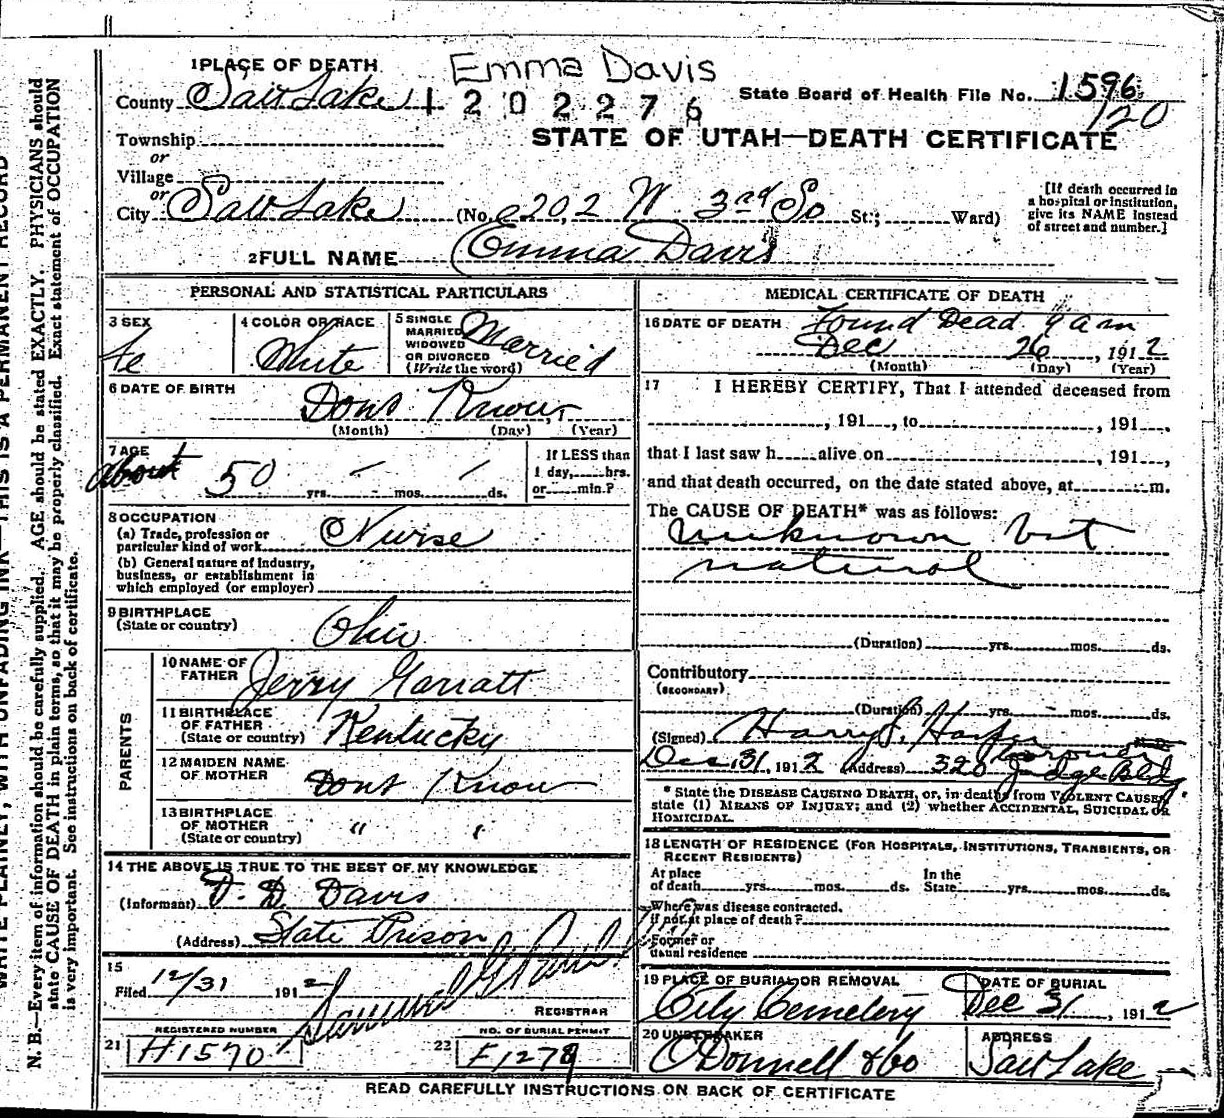 Emma Davis
1 PLACE OF DEATH
County Salt Lake
1202276
State Board of Health File No. 1596
120
STATE OF UTAH—DEATH CERTIFICATE
Township
or
Village
or
City Salt Lake (No. 202 W 3rd So St.; Ward)
[If death occurred in
a hospital or institution,
give its NAME instead
of street and number.]
2 FULL NAME Emma Davis
PERSONAL AND STATISTICAL PARTICULARS
3 SEX
Fe
4 COLOR OR RACE
White
5 SINGLE
MARRIED
WIDOWED
OR DIVORCED
(Write the word)
Married
6 DATE OF BIRTH
Dont Know
(Month) (Day) (Year)
7 AGE
about 50 yrs. mos. ds.
If LESS than
1 day, hrs.
or min.?
8 OCCUPATION
(a) Trade, profession or
particular kind of work Nurse
(b) General nature of Industry,
business, or establishment in
which employed (or employer)
9 BIRTHPLACE
(State or country) Ohio
PARENTS
10 NAME OF
FATHER Jerry Garratt
11 BIRTHPLACE
OF FATHER
(State or country) Kentucky
12 MAIDEN NAME
OF MOTHER Dont Know
13 BIRTHPLACE
OF MOTHER
(State or country) " "
14 THE ABOVE IS TRUE TO THE BEST OF MY KNOWLEDGE
(Informant) D. Davis
(Address) State Prison
15
Filed 12/31 1912
REGISTRAR
REGISTERED NUMBER
21 H1570
NO. OF BURIAL PERMIT
22 F1279
MEDICAL CERTIFICATE OF DEATH
16 DATE OF DEATH Found Dead 9 a m
Dec 26, 1912
(Month) (Day) (Year)
17 I HEREBY CERTIFY, That I attended deceased from
, 191 , to , 191 ,
that I last saw h alive on , 191 ,
and that death occurred, on the date stated above, at m.
The CAUSE OF DEATH* was as follows:
unknown but
natural
(Duration) yrs. mos. ds.
Contributory
(SECONDARY)
(Duration) yrs. mos. ds.
(Signed) Harry S. Harper M. D.
Coroner
Dec. 31, 1912 (Address) 320 Judge Bldg.
* State the DISEASE CAUSING DEATH, or, in deaths from VIOLENT CAUSES,
state (1) MEANS OF INJURY; and (2) whether ACCIDENTAL, SUICIDAL OR
HOMICIDAL.
18 LENGTH OF RESIDENCE (FOR HOSPITALS, INSTITUTIONS, TRANSIENTS, OR
RECENT RESIDENTS)
At place
of death yrs. mos. ds.
In the
State yrs. mos. ds.
Where was disease contracted,
if not at place of death?
Former or
usual residence
19 PLACE OF BURIAL OR REMOVAL
City Cemetery
DATE OF BURIAL
Dec 31, 1912
20 UNDERTAKER
O'Donnell & Co
ADDRESS
Salt Lake
READ CAREFULLY INSTRUCTIONS ON BACK OF CERTIFICATE
WRITE PLAINLY, WITH UNFADING INK—THIS IS A PERMANENT RECORD
N. B.—Every item of information should be carefully supplied. AGE should be stated EXACTLY. PHYSICIANS should
state CAUSE OF DEATH in plain terms, so that it may be properly classified. Exact statement of OCCUPATION
is very important. See instructions on back of certificate.